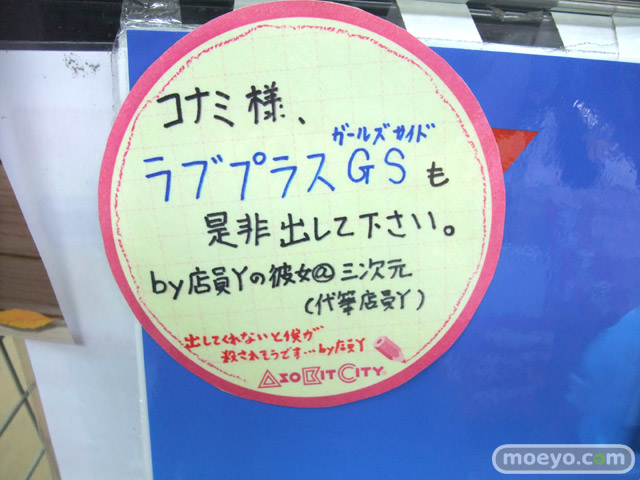 コナミ様、
ガールズサイド
ラブプラスGSも
是非出して下さい。
by店員Yの彼女@三次元
(代筆店員Y)
出してくれないと僕が
殺されそうです…by店員Y
ASOBITCITY
moeyo.com